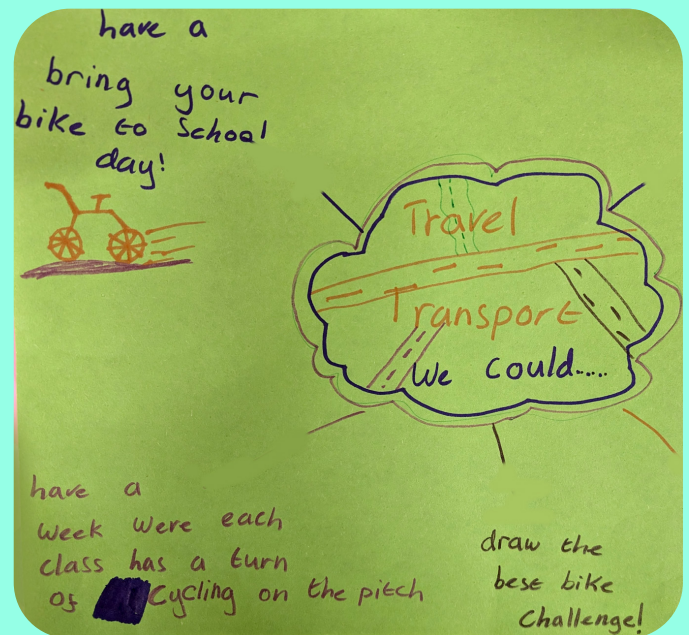 have a
bring your
bike to School
day!
Travel
Transport
We could.....
have a
week were each
class has a turn
of Cycling on the pitch
draw the
best bike
Challenge!